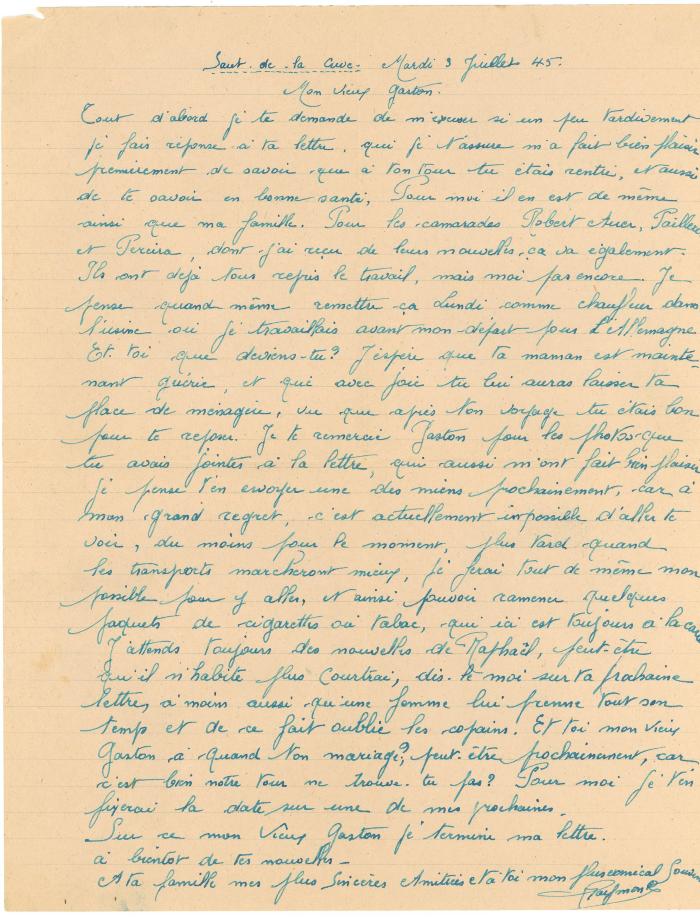 Saut-de-la Cuve. Mardi 3 Juillet 45.
Mon vieux Gaston.
Tout d'abord je te demande de m'excuser si un peu tardivement
je fais réponse à ta lettre, qui je t'assure m'a fait bien plaisir
premièrement de savoir que à ton tour tu étais rentré, et aussi
de te savoir en bonne santé, Pour moi il en est de même
ainsi que ma famille. Pour les camarades Robert Auer, Pailleu
et Pereira, dont j'ai reçu de leurs nouvelles, ça va également.
Ils ont déjà tous repris le travail, mais moi pas encore. Je
pense quand même remettre ça Lundi comme chauffeur dans
l'usine où je travaillais avant mon départ pour L'Allemagne
Et toi que deviens-tu? J'espère que ta maman est mainte-
nant guérie, et que avec joie tu lui auras laisser ta
place de ménagère, vu que après ton voyage tu étais bon
pour te reposer. Je te remercie Gaston pour les photos que
tu avais jointes à la lettre, qui aussi m'ont fait bien plaisir
je pense t'en envoyer une des miens prochainement, car à
mon grand regret, c'est actuellement impossible d'aller te
voir, du moins pour le moment, plus tard quand
les transports marcheront mieux, je ferai tout de même mon
possible pour y aller, et ainsi pouvoir ramener quelques
paquets de cigarettes ou tabac, qui ici est toujours à la carte
J'attends toujours des nouvelles de Raphaël, peut-être
qu'il n'habite plus Courtrai, dis-le moi sur ta prochaine
lettre, à moins aussi qu'une femme lui prenne tout son
temps et de ce fait oublie les copains. Et toi mon vieux
Gaston à quand ton mariage?, peut-être prochainement, car
c'est bien notre tour ne trouve-tu pas? Pour moi je t'en
fixerai la date sur une de mes prochaines.
Sur ce mon vieux Gaston je termine ma lettre.
à bientôt de tes nouvelles-
A ta famille mes plus Sincères Amitiés et à toi mon plus amical Souvenir
Raymond